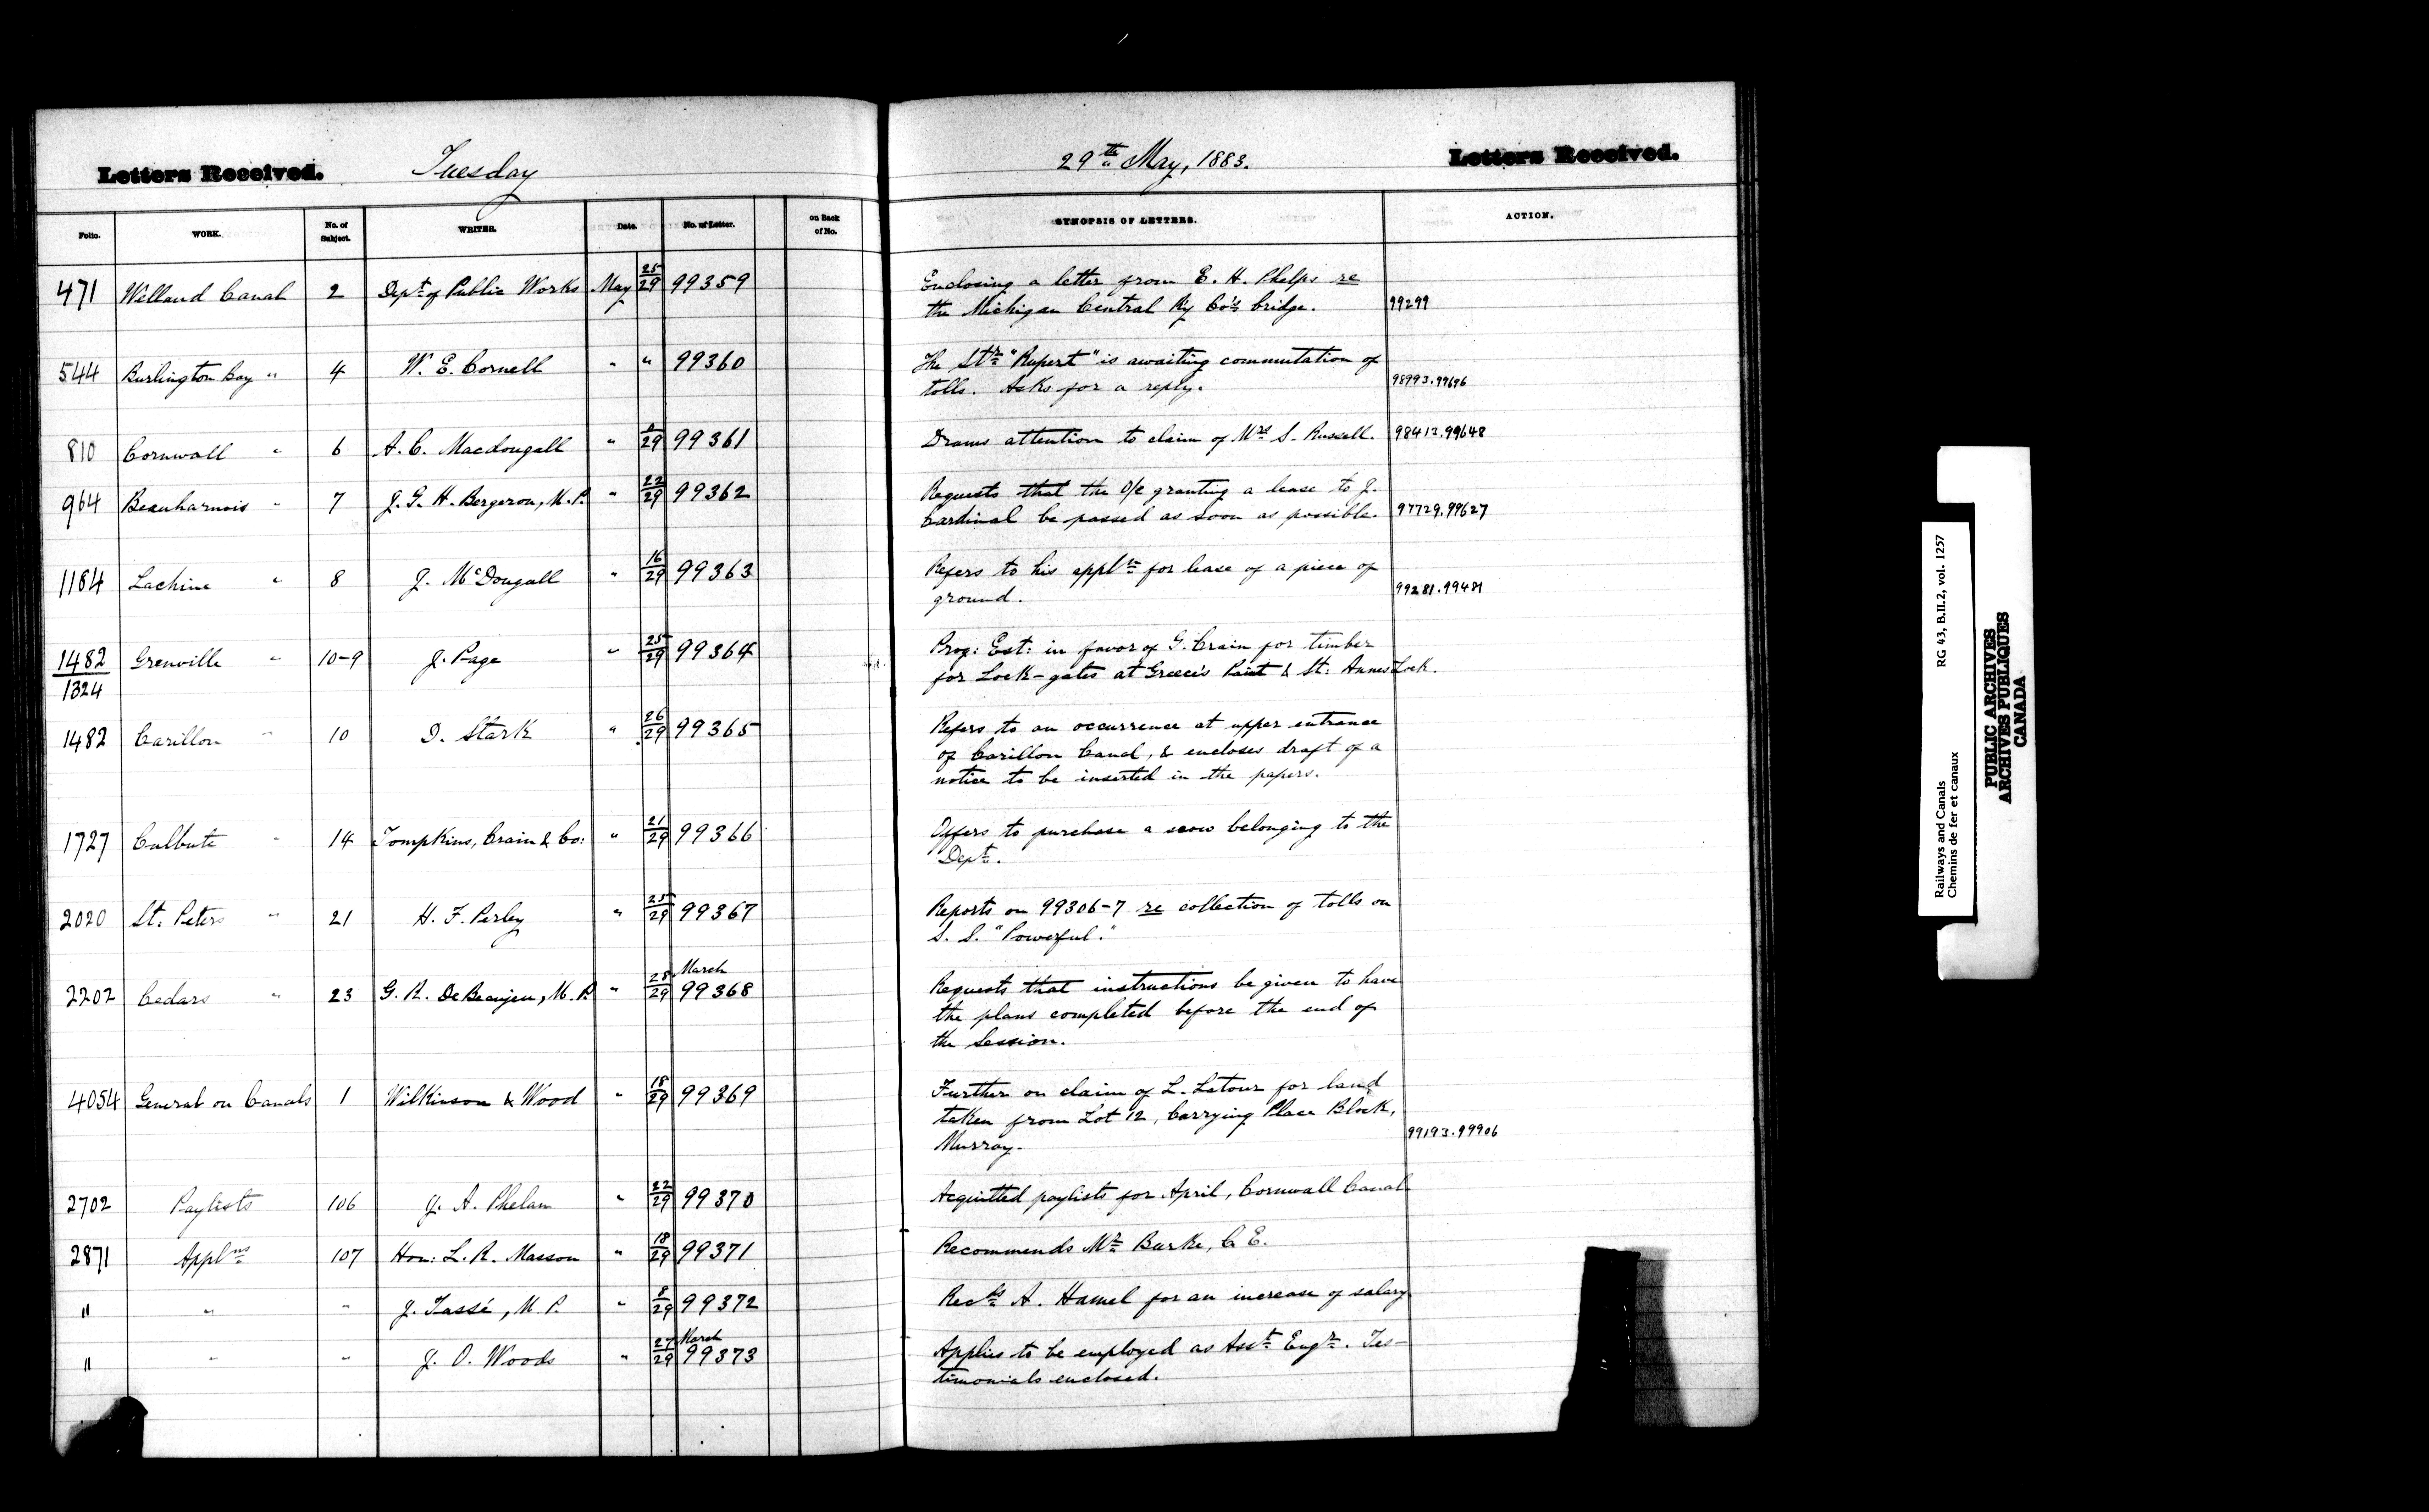 Letters Received. Tuesday 29th May, 1883. Letters Received.
Folio. WORK. No. of Subject. WRITER. Date. No. of Letter. on Back of No. SYNOPSIS OF LETTERS. ACTION.
471 Welland Canal 2 Dept of Public Works May 25/29 99359 Enclosing a letter from E. H. Phelps re
the Michigan Central Ry Co's bridge. 99299
544 Burlington Bay " 4 W. E. Cornell " " 99360 The Str "Rupert" is awaiting commutation of
tolls. Asks for a reply. 98993.99696
810 Cornwall " 6 A. C. Macdougall " /29 99361 Draws attention to claim of Mrs S. Russell. 98413.99648
964 Beauharnois " 7 J. G. H. Bergeron, M.P. " 22/29 99362 Requests that the O/C granting a lease to J.
Cardinal be passed as soon as possible. 97729.99627
1184 Lachine " 8 J. McDougall " 16/29 99363 Refers to his appln for lease of a piece of
ground. 99281.99481
1482/1324 Grenville " 10-9 J. Page " 25/29 99364 Prog: Est: in favor of G. Crain for timber
for Lock-gates at Greece's Point & St. Annes Lock.
1482 Carillon " 10 D. Stark " 26/29 99365 Refers to an occurrence at upper entrance
of Carillon Canal, & encloses draft of a
notice to be inserted in the papers.
1727 Culbute " 14 Tompkins, Crain & Co: " 21/29 99366 Offers to purchase a scow belonging to the
Dept.
2020 St. Peters " 21 H. F. Perley " 25/29 99367 Reports on 99306-7 re collection of tolls on
S. S. "Powerful."
2202 Cedars " 23 G. R. De Beaujeu, M.P. " 28 March/29 99368 Requests that instructions be given to have
the plans completed before the end of
the Session.
4054 General on Canals 1 Wilkinson & Wood " 18/29 99369 Further on claim of L. Latour for land
taken from Lot 12, Carrying Place Block,
Murray. 99193.99906
2702 Paylists 106 J. A. Phelan " 22/29 99370 Acquitted paylists for April, Cornwall Canal
2871 Applns 107 Hon: L. R. Masson " 18/29 99371 Recommends Mr Burke, C. E.
" " " J. Tassé, M. P. " 8/29 99372 Recds A. Hamel for an increase of salary
" " " J. O. Woods " 27 March/29 99373 Applies to be employed as Asst Engr. Tes-
timonials enclosed.
Railways and Canals RG 43, B.II.2, vol. 1257
Chemins de fer et canaux
PUBLIC ARCHIVES
ARCHIVES PUBLIQUES
CANADA